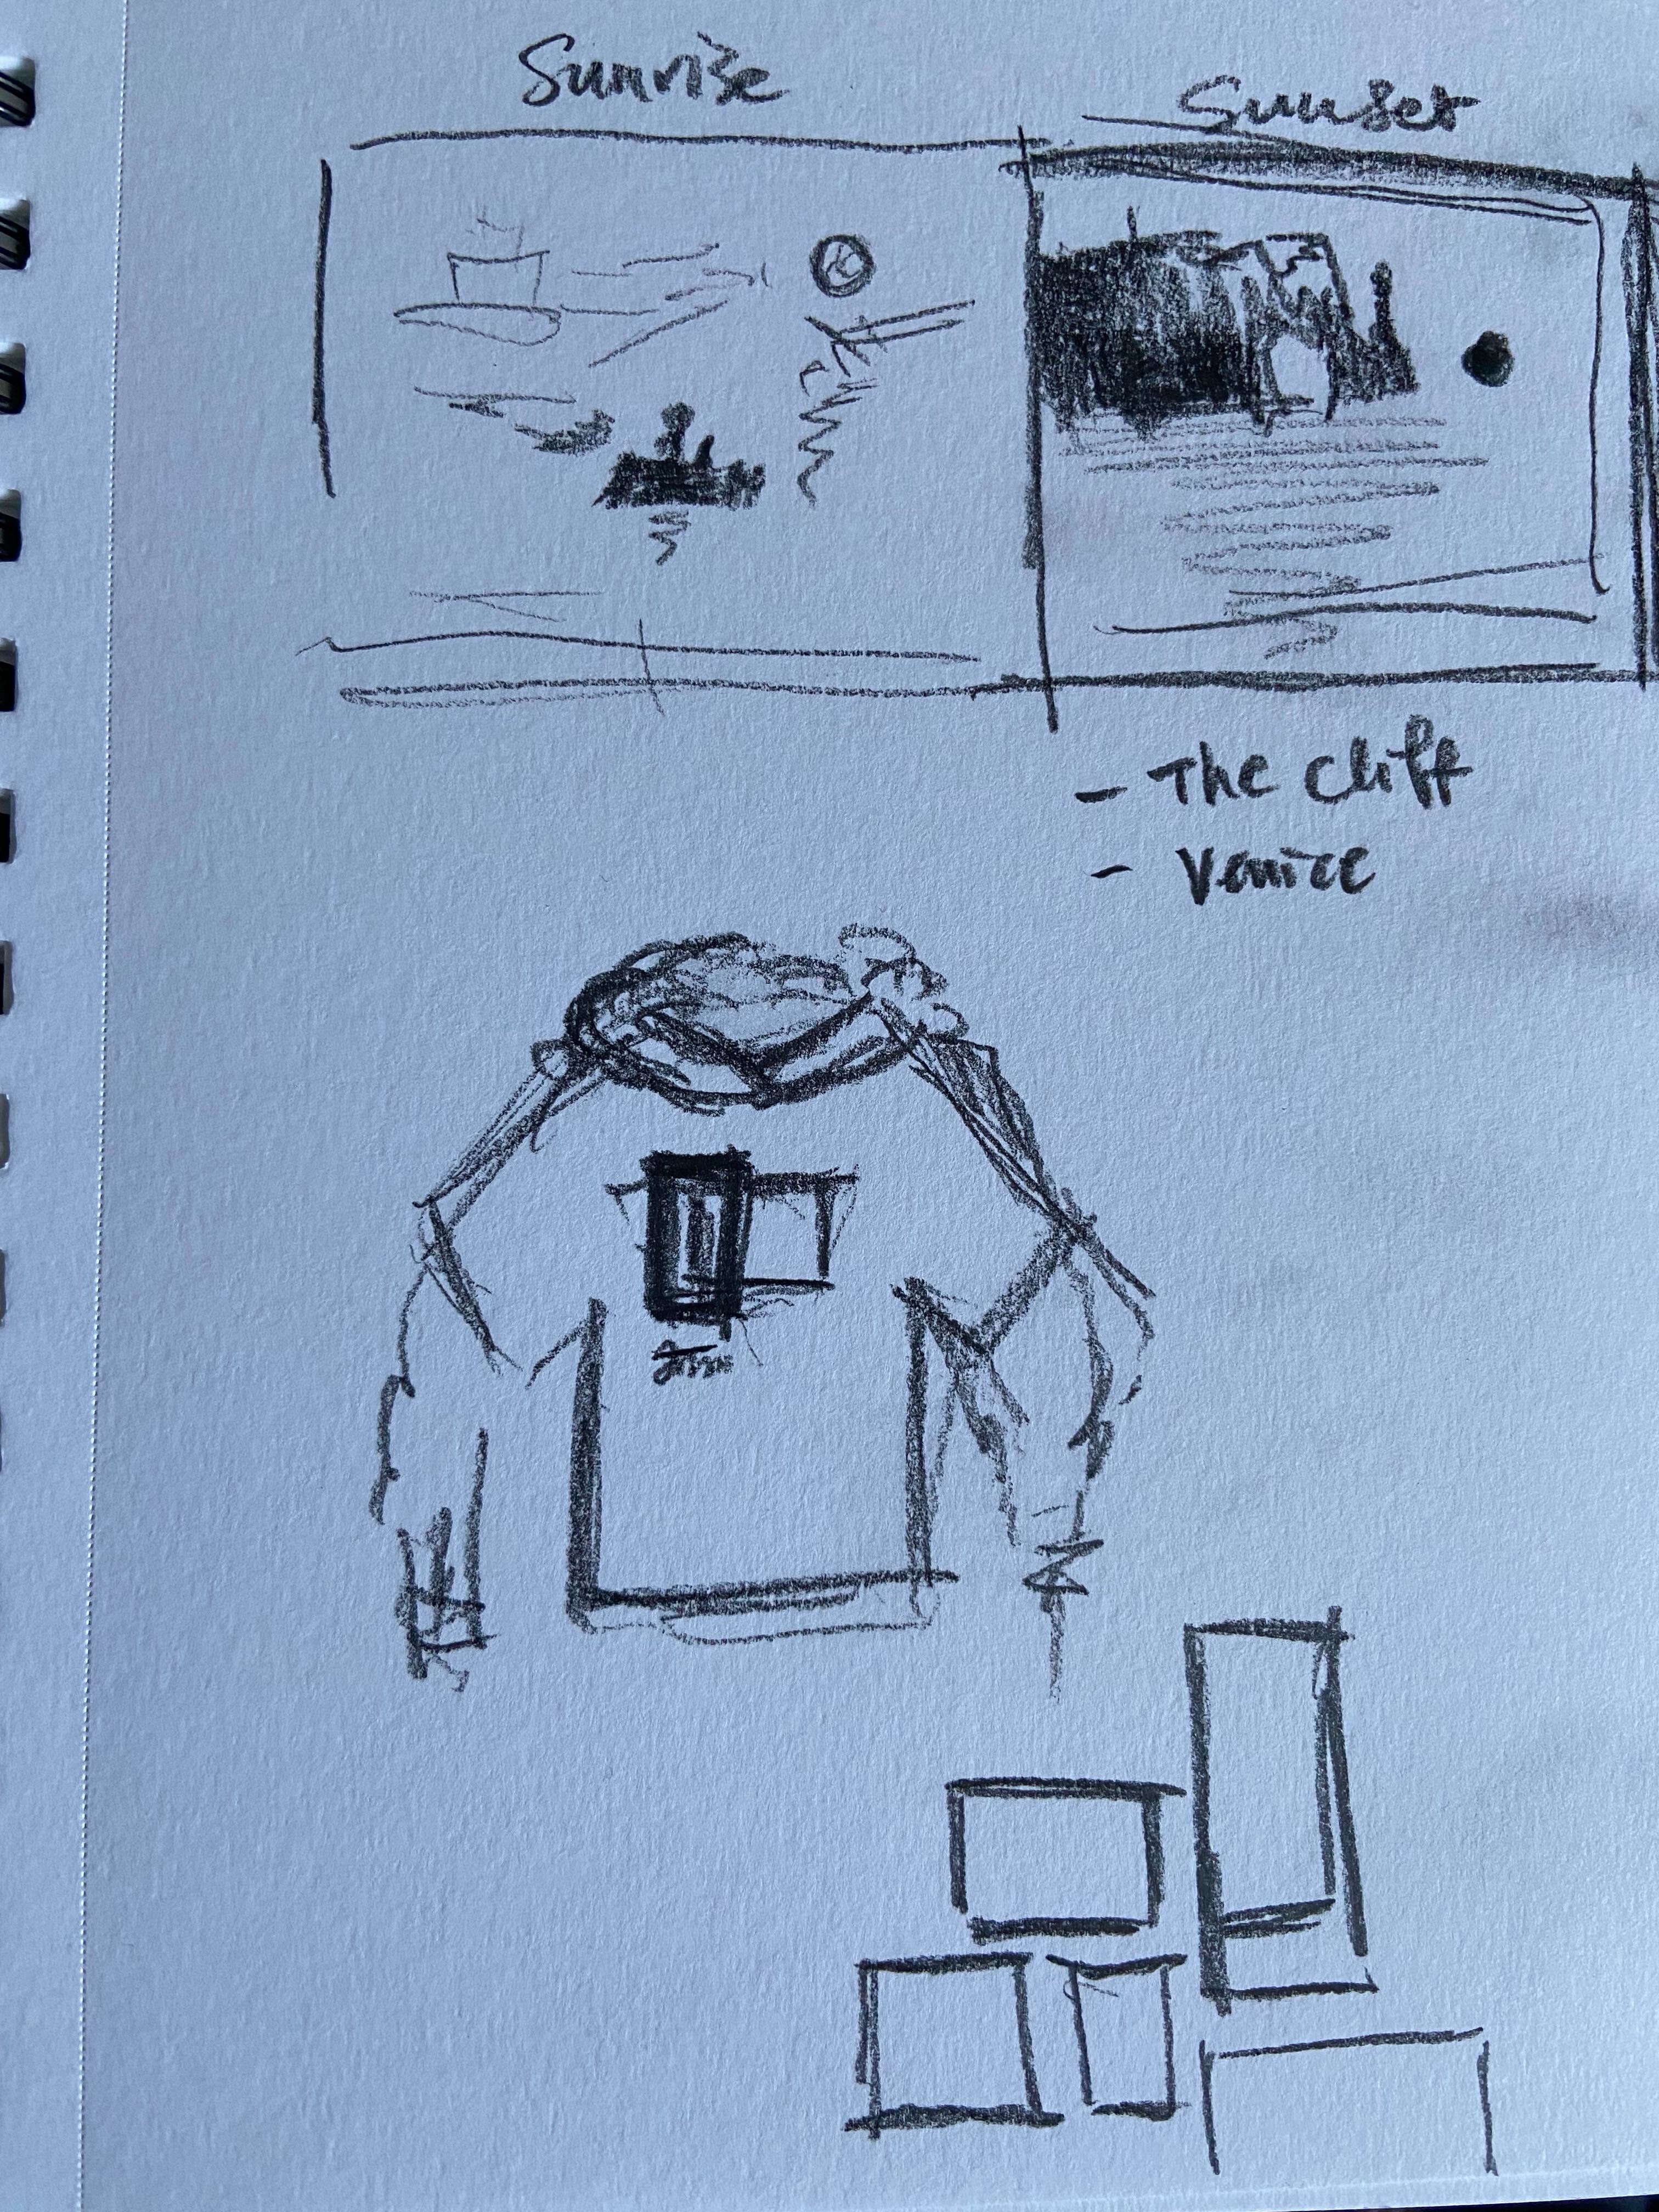 Sunrise
Sunset
- The Cliff
- Venice